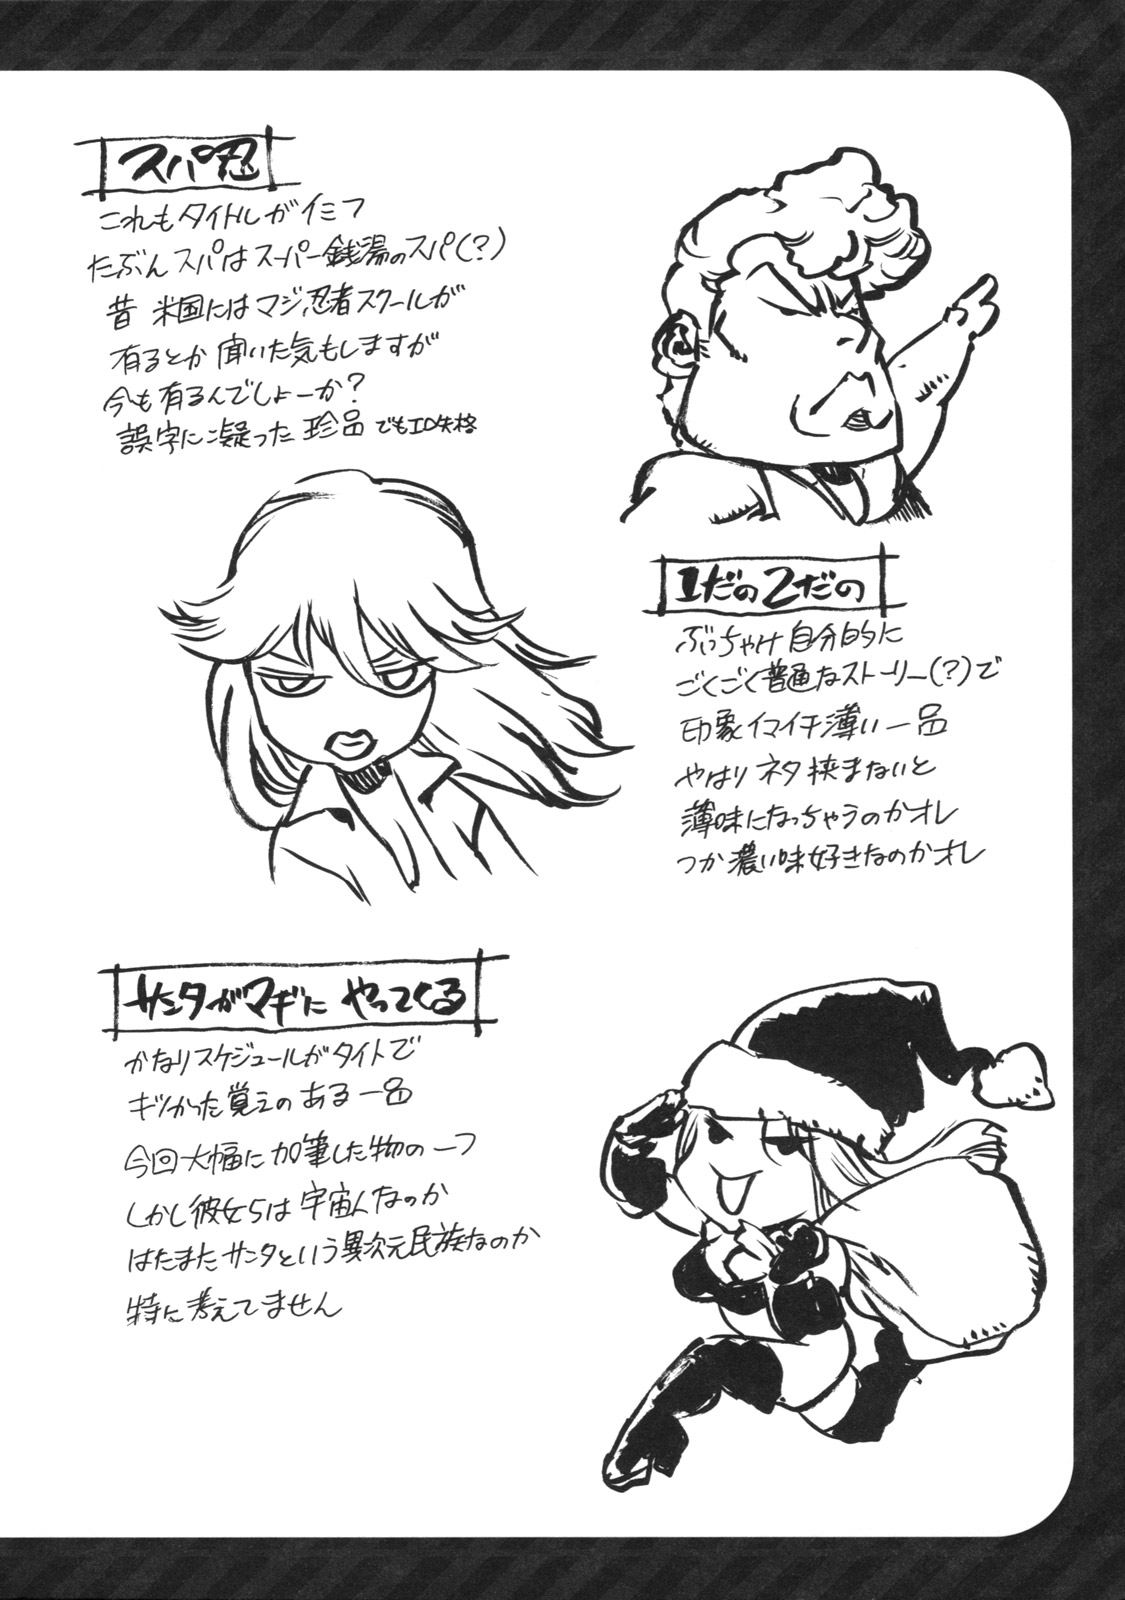 スパ忍
これもタイトルがイミフ
たぶんスパはスーパー銭湯のスパ(?)
昔 米国にはマジ忍者スクールが
有るとか聞いた気もしますが
今も有るんでしょーか?
誤字に凝った珍品 でもエロ失格
1だの2だの
ぶっちゃけ自分的に
ごくごく普通なストーリー(?)で
印象イマイチ薄い一品
やはりネタ挟まないと
薄味になっちゃうのかオレ
つか濃い味好きなのかオレ
サンタがマギに やってくる
かなりスケジュールがタイトで
キツかった覚えのある一品
今回大幅に加筆した物の一つ
しかし彼女らは宇宙人なのか
はたまたサンタという異次元民族なのか
特に考えてません